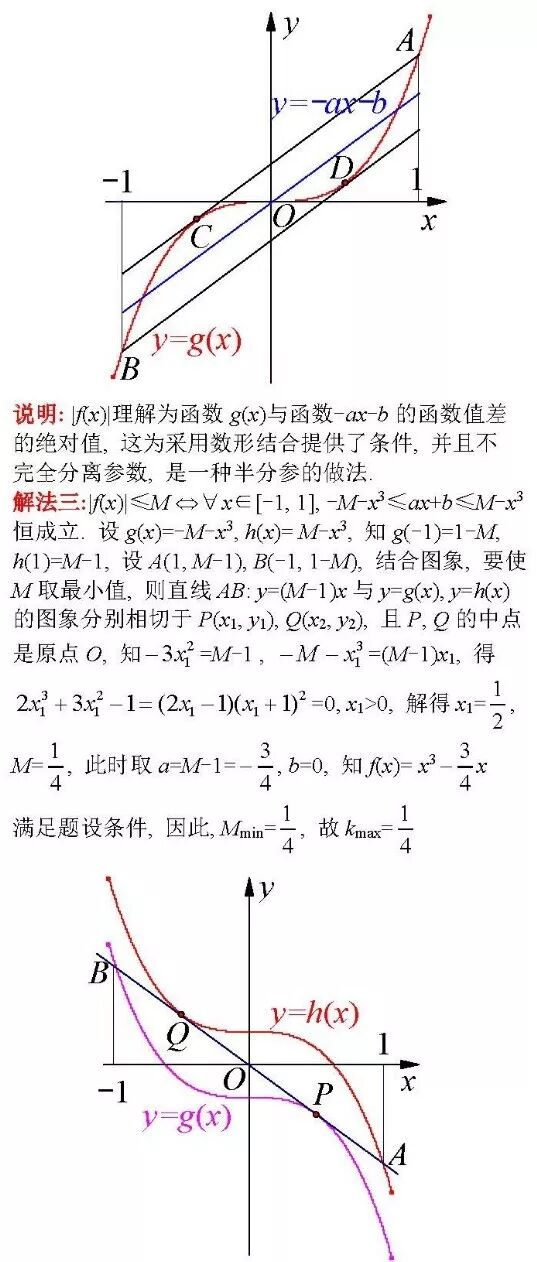 y
A
y=-ax-b
D
-1
1
O
x
C
y=g(x)
B
说明: |f(x)|理解为函数 g(x)与函数-ax-b 的函数值差
的绝对值, 这为采用数形结合提供了条件, 并且不
完全分离参数, 是一种半分参的做法.
解法三:|f(x)|≤M⇔∀x∈[-1, 1], -M-x³≤ax+b≤M-x³
恒成立. 设 g(x)=-M-x³, h(x)= M-x³, 知 g(-1)=1-M,
h(1)=M-1, 设 A(1, M-1), B(-1, 1-M), 结合图象, 要使
M 取最小值, 则直线 AB: y=(M-1)x 与 y=g(x), y=h(x)
的图象分别相切于 P(x₁, y₁), Q(x₂, y₂), 且 P, Q 的中点
是原点 O, 知 -3x₁²=M-1, -M-x₁³=(M-1)x₁, 得
2x₁³+3x₁²-1=(2x₁-1)(x₁+1)²=0, x₁>0, 解得 x₁=1/2,
M=1/4, 此时取 a=M-1=-3/4, b=0, 知 f(x)= x³-3/4x
满足题设条件, 因此, Mmin=1/4, 故 kmax=1/4
y
B
y=h(x)
Q
1
O
P
x
-1
y=g(x)
A